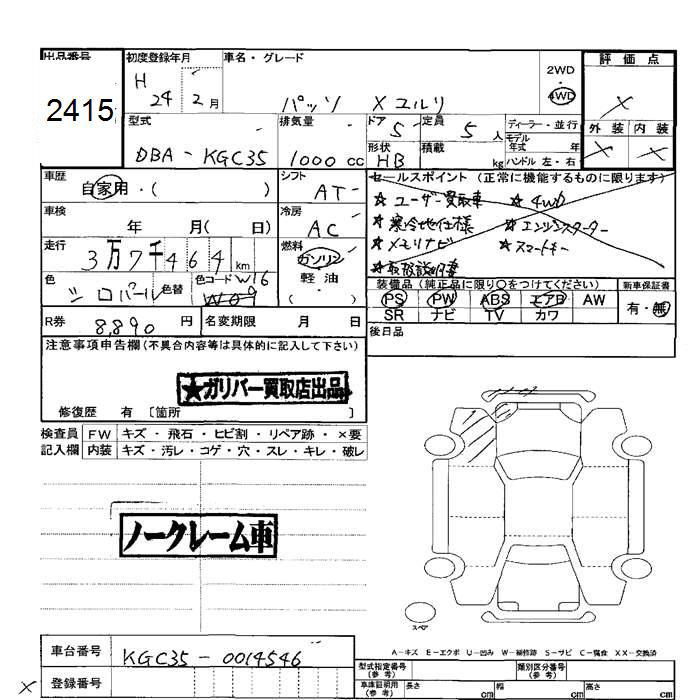 出品番号
2415
初度登録年月
H 24年 2月
車名・グレード
パッソ X ユルリ
2WD
・
4WD
評価点
X
外装 内装
X X
型式
DBA-KGC35
排気量
1000 cc
ドア 5
定員 5 人
ディーラー・並行
モデル
年式 年
形状 HB
積載 kg
ハンドル 左・右
車歴
自家用・( )
シフト
AT
セールスポイント (正常に機能するものに限ります)
★ユーザー買取車 ★4WD
★寒冷地仕様 ★エンジンスターター
★メモリナビ ★スマートキー
★取扱説明書
車検
年 月( 日)
冷房
AC
走行
3万7千464 km
燃料
ガソリン
軽油
( )
色
シロパール
色替
色コード W16
W09
装備品 (純正品に限り○をつけてください)
PS PW ABS エアB AW
SR ナビ TV カワ
新車保証書
有・無
R券 8,890 円
名変期限 月 日
後日品
注意事項申告欄(不具合内容等は具体的に記入して下さい)
★ガリバー買取店出品
修復歴 有 〔箇所 〕
検査員
記入欄
FW キズ・飛石・ヒビ割・リペア跡・×要
内装 キズ・汚レ・コゲ・穴・スレ・キレ・破レ
ノークレーム車
スペア
A-キズ E-エクボ U-凹み W-補修跡 S-サビ C-腐食 XX-交換済
車台番号
KGC35-0014546
X
登録番号
型式指定番号
(参考)
類別区分番号
(参考)
車庫証明用
(参考)
長さ cm
幅 cm
高さ cm